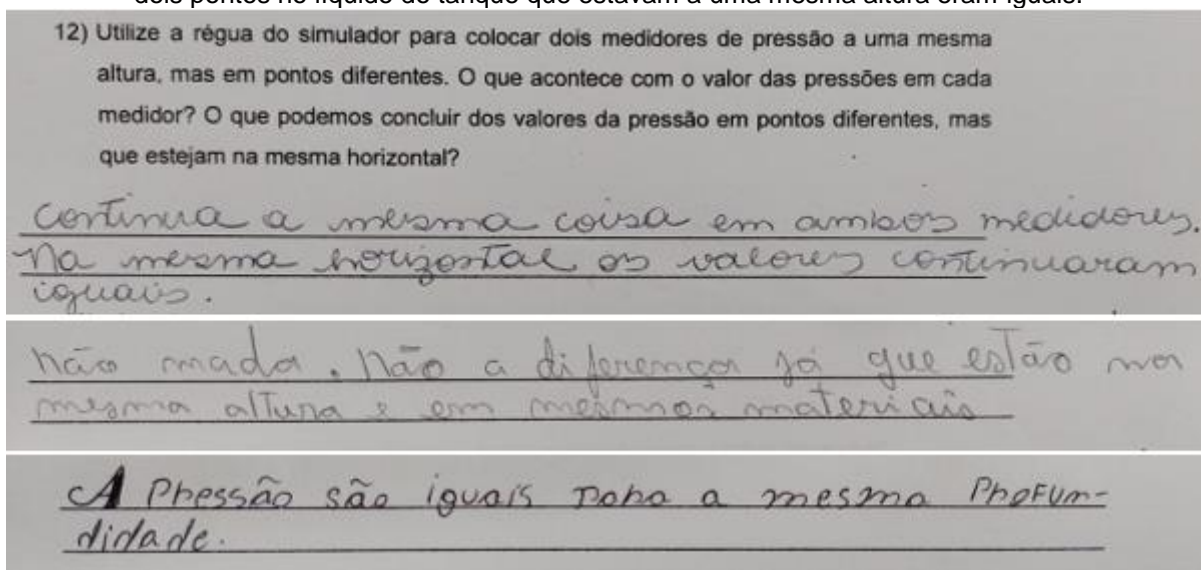 dois pontos no líquido do tanque que estavam a uma mesma altura eram iguais.
12) Utilize a régua do simulador para colocar dois medidores de pressão a uma mesma
altura, mas em pontos diferentes. O que acontece com o valor das pressões em cada
medidor? O que podemos concluir dos valores da pressão em pontos diferentes, mas
que estejam na mesma horizontal?
continua a mesma coisa em ambos medidores.
Na mesma horizontal os valores continuaram
iguais.
não mada. Não a diferença já que estão na
mesma altura e em mesmos materiais
A Pressão são iguais Para a mesma Profun-
didade.